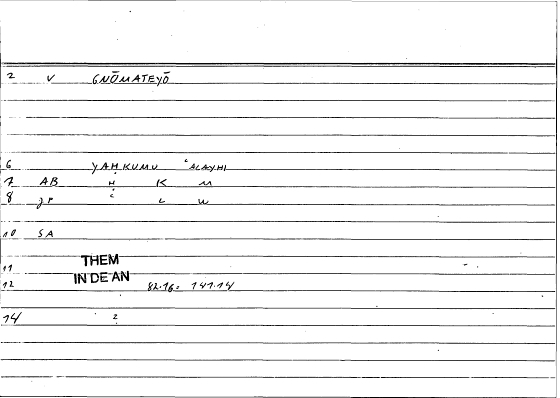 2 V GNŌMATEYŌ
6 YAḤKUMU ʿALAYHI
7 AB Ḥ K M
8
10 SA
11 THEM
IN DE AN
12 82.16: 141.14
14 2